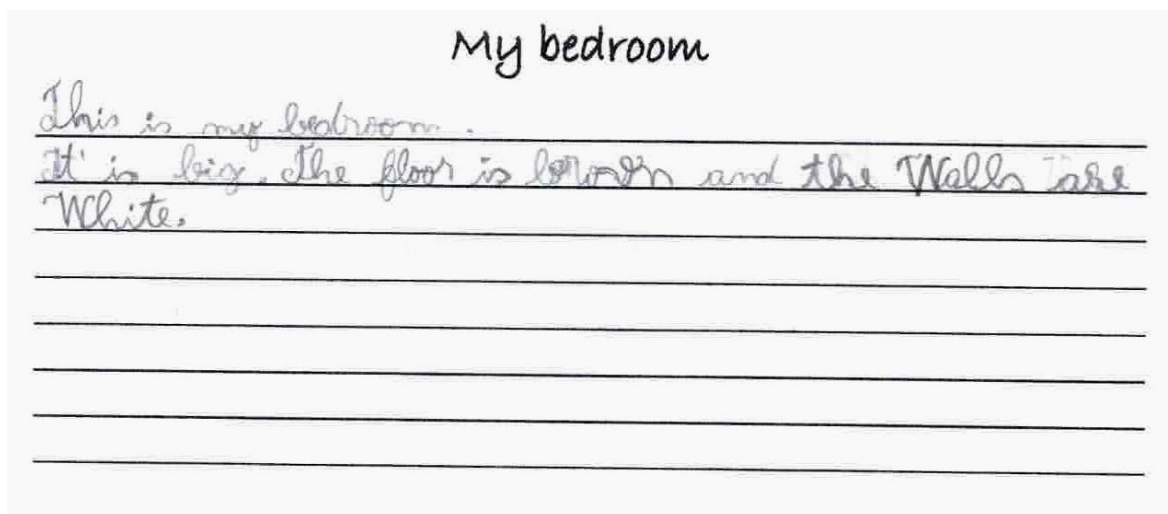 My bedroom
This is my bedroom.
It is big. The floor is brown and the Walls are
White.